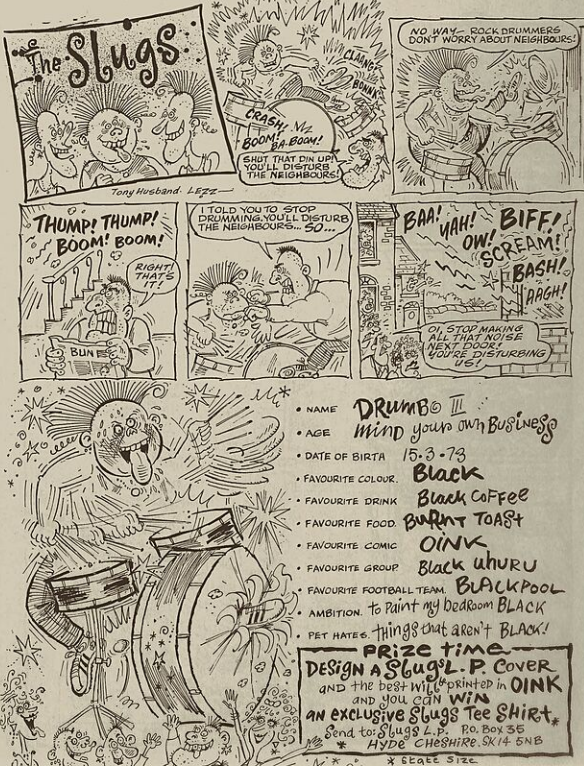 The Slugs
Tony Husband. LEZZ
CLANG!
BONK!
CRASH!
BOOM!
BA-BOOM!
SHUT THAT DIN UP!
YOU'LL DISTURB
THE NEIGHBOURS!
NO WAY - ROCK DRUMMERS
DON'T WORRY ABOUT NEIGHBOURS!
THUMP! THUMP!
BOOM! BOOM!
RIGHT!
THAT'S
IT!
BUN
I TOLD YOU TO STOP
DRUMMING, YOU'LL DISTURB
THE NEIGHBOURS... SO...
BAA!
YAH!
OW!
BIFF!
SCREAM!
BASH!
AAGH!
OI, STOP MAKING
ALL THAT NOISE
NEXT DOOR!
YOU'RE DISTURBING
US!
• NAME DRUMBO III
• AGE mind your own BUSINESS
• DATE OF BIRTH 15.3.73
• FAVOURITE COLOUR. Black
• FAVOURITE DRINK Black COFFEE
• FAVOURITE FOOD. BURNT TOAST
• FAVOURITE COMIC OINK
• FAVOURITE GROUP. Black uhuru
• FAVOURITE FOOTBALL TEAM. BLACKPOOL
• AMBITION. to paint my bedroom BLACK
• PET HATES. things that aren't BLACK!
PRIZE time
DESIGN A Slugs L.P. COVER
and the best will be printed in OINK
and you can WIN
an exclusive Slugs Tee Shirt*
Send to: Slugs L.P. P.O. Box 35
HYDE CHESHIRE. SK14 5NB
* State Size